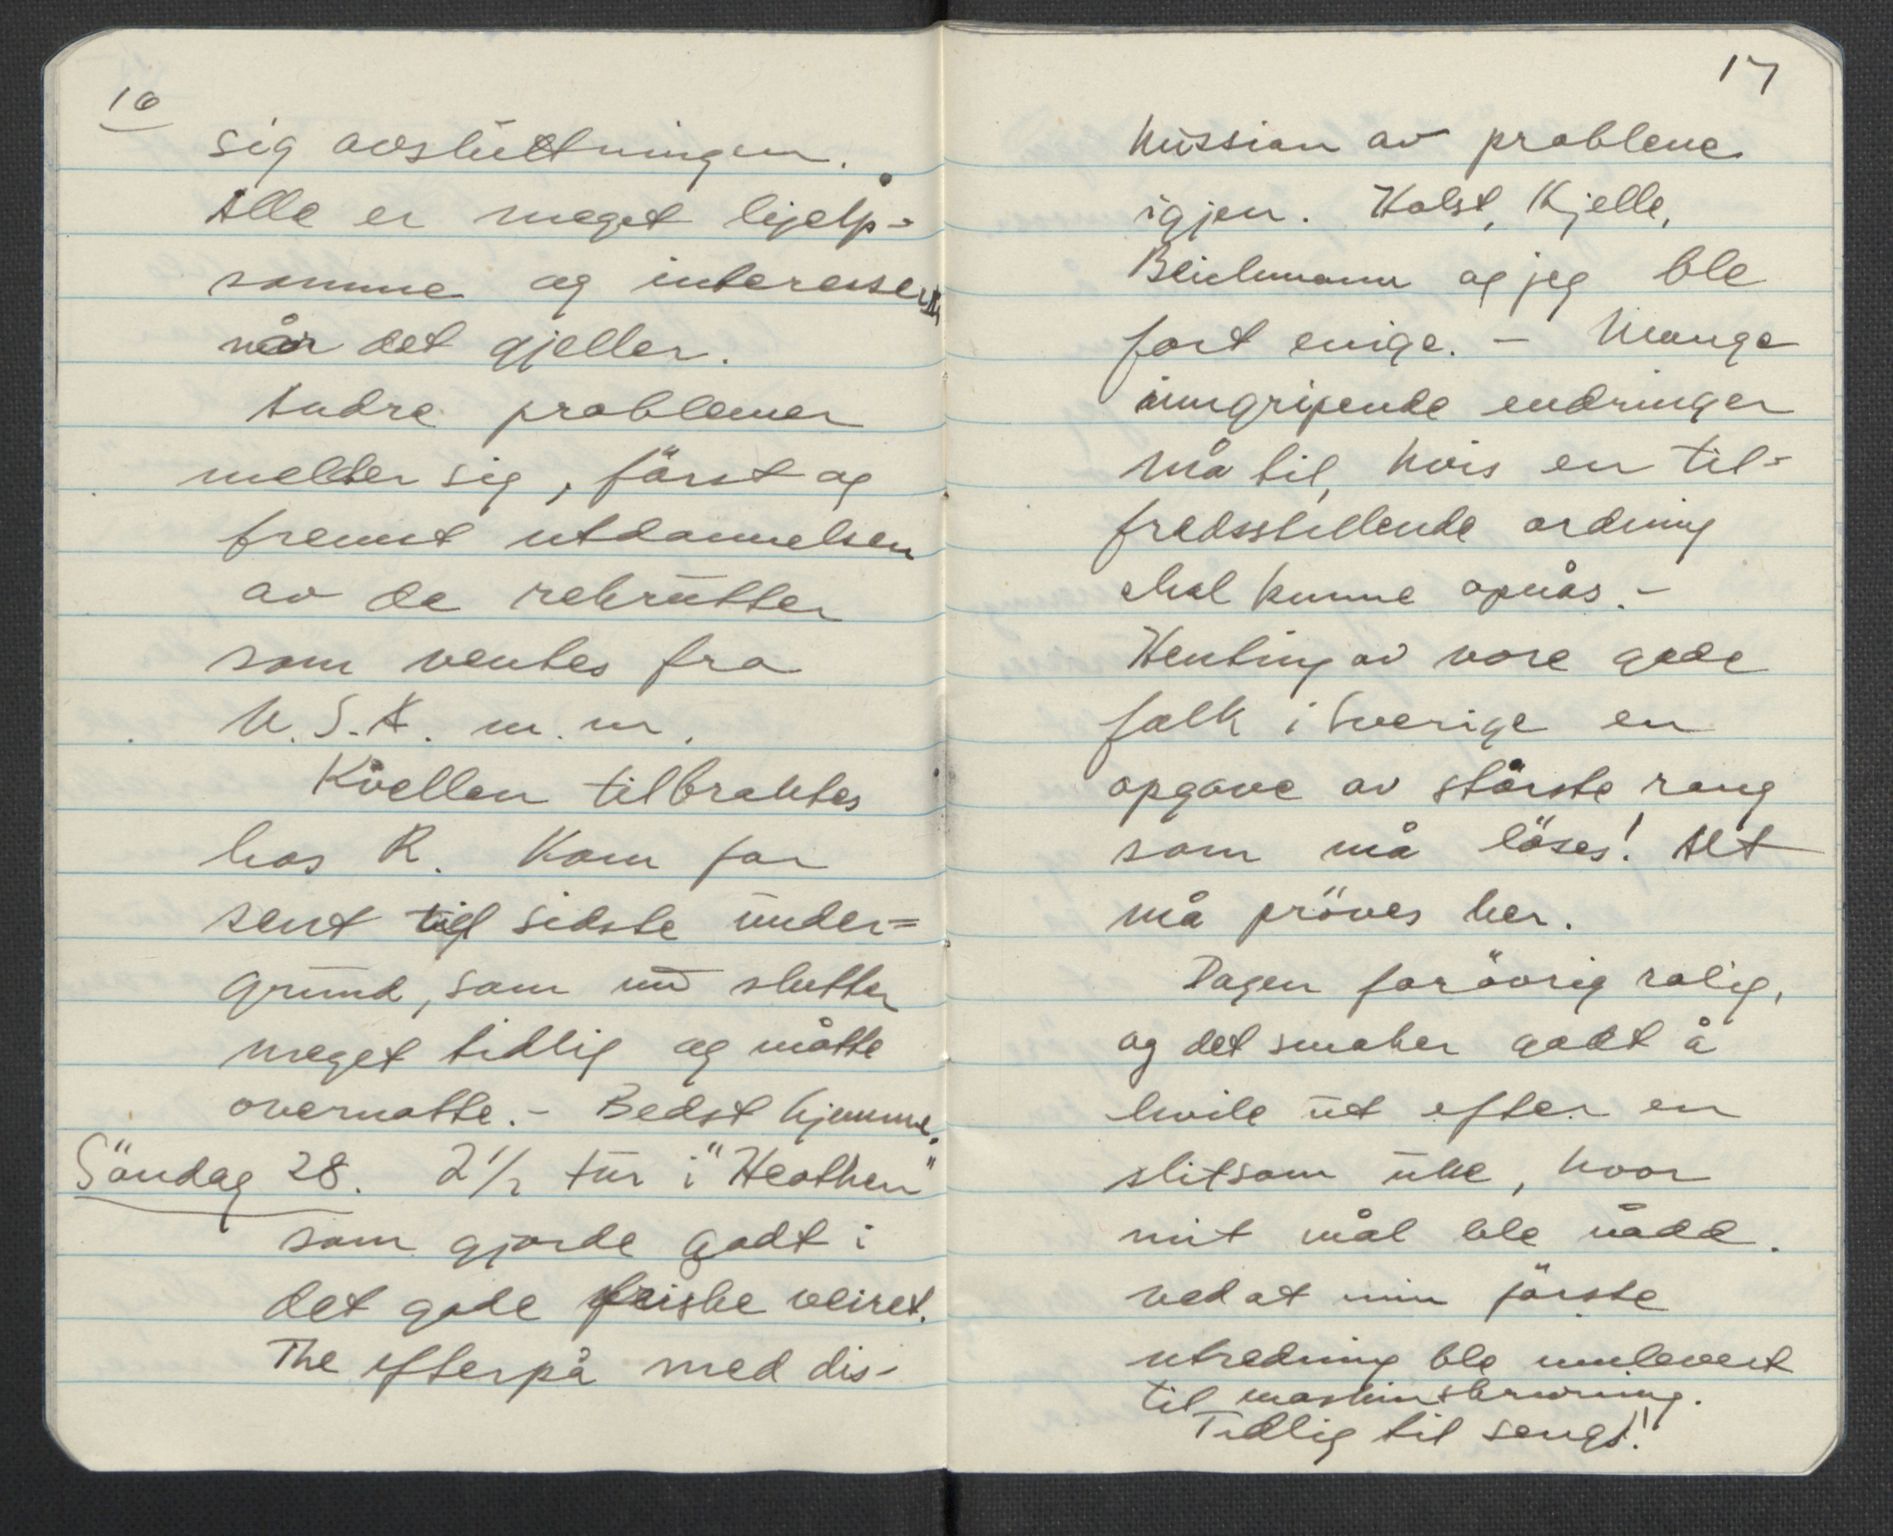 16
sig avsluttningen.
Alle er meget hjelp=
somme og interesserte
når det gjeller.
Andre problemer
melder sig, först og
fremst utdannelsen
av de rekrutter
som ventes fra
U.S.A. m.m.
Kvellen tilbraktes
hos R. Kom for
sent til sidste under=
grund, som nu slutter
meget tidlig og måtte
overnatte. - Bedst hjemme.
Söndag 28. 2 1/2 tur i "Heathen"
som gjorde godt i
det gode friske veiret.
The efterpå med dis-
17
kussion av problene
igjen. Holst, Kjelle,
Beichmann og jeg ble
fort enige. - Mange
inngripende endringer
må til, hvis en til=
fredsstillende ordning
skal kunne opnås. -
Henting av vore gode
folk i Sverige en
opgave av störste rang
som må löses! Alt
må pröves her.
Dagen forövrig rolig,
og det smaker godt å
hvile ut efter en
slitsom uke, hvor
mit mål ble nådd.
ved at min förste
utredning ble innlevert
til maskinskrivning.
Tidlig til sengs!!